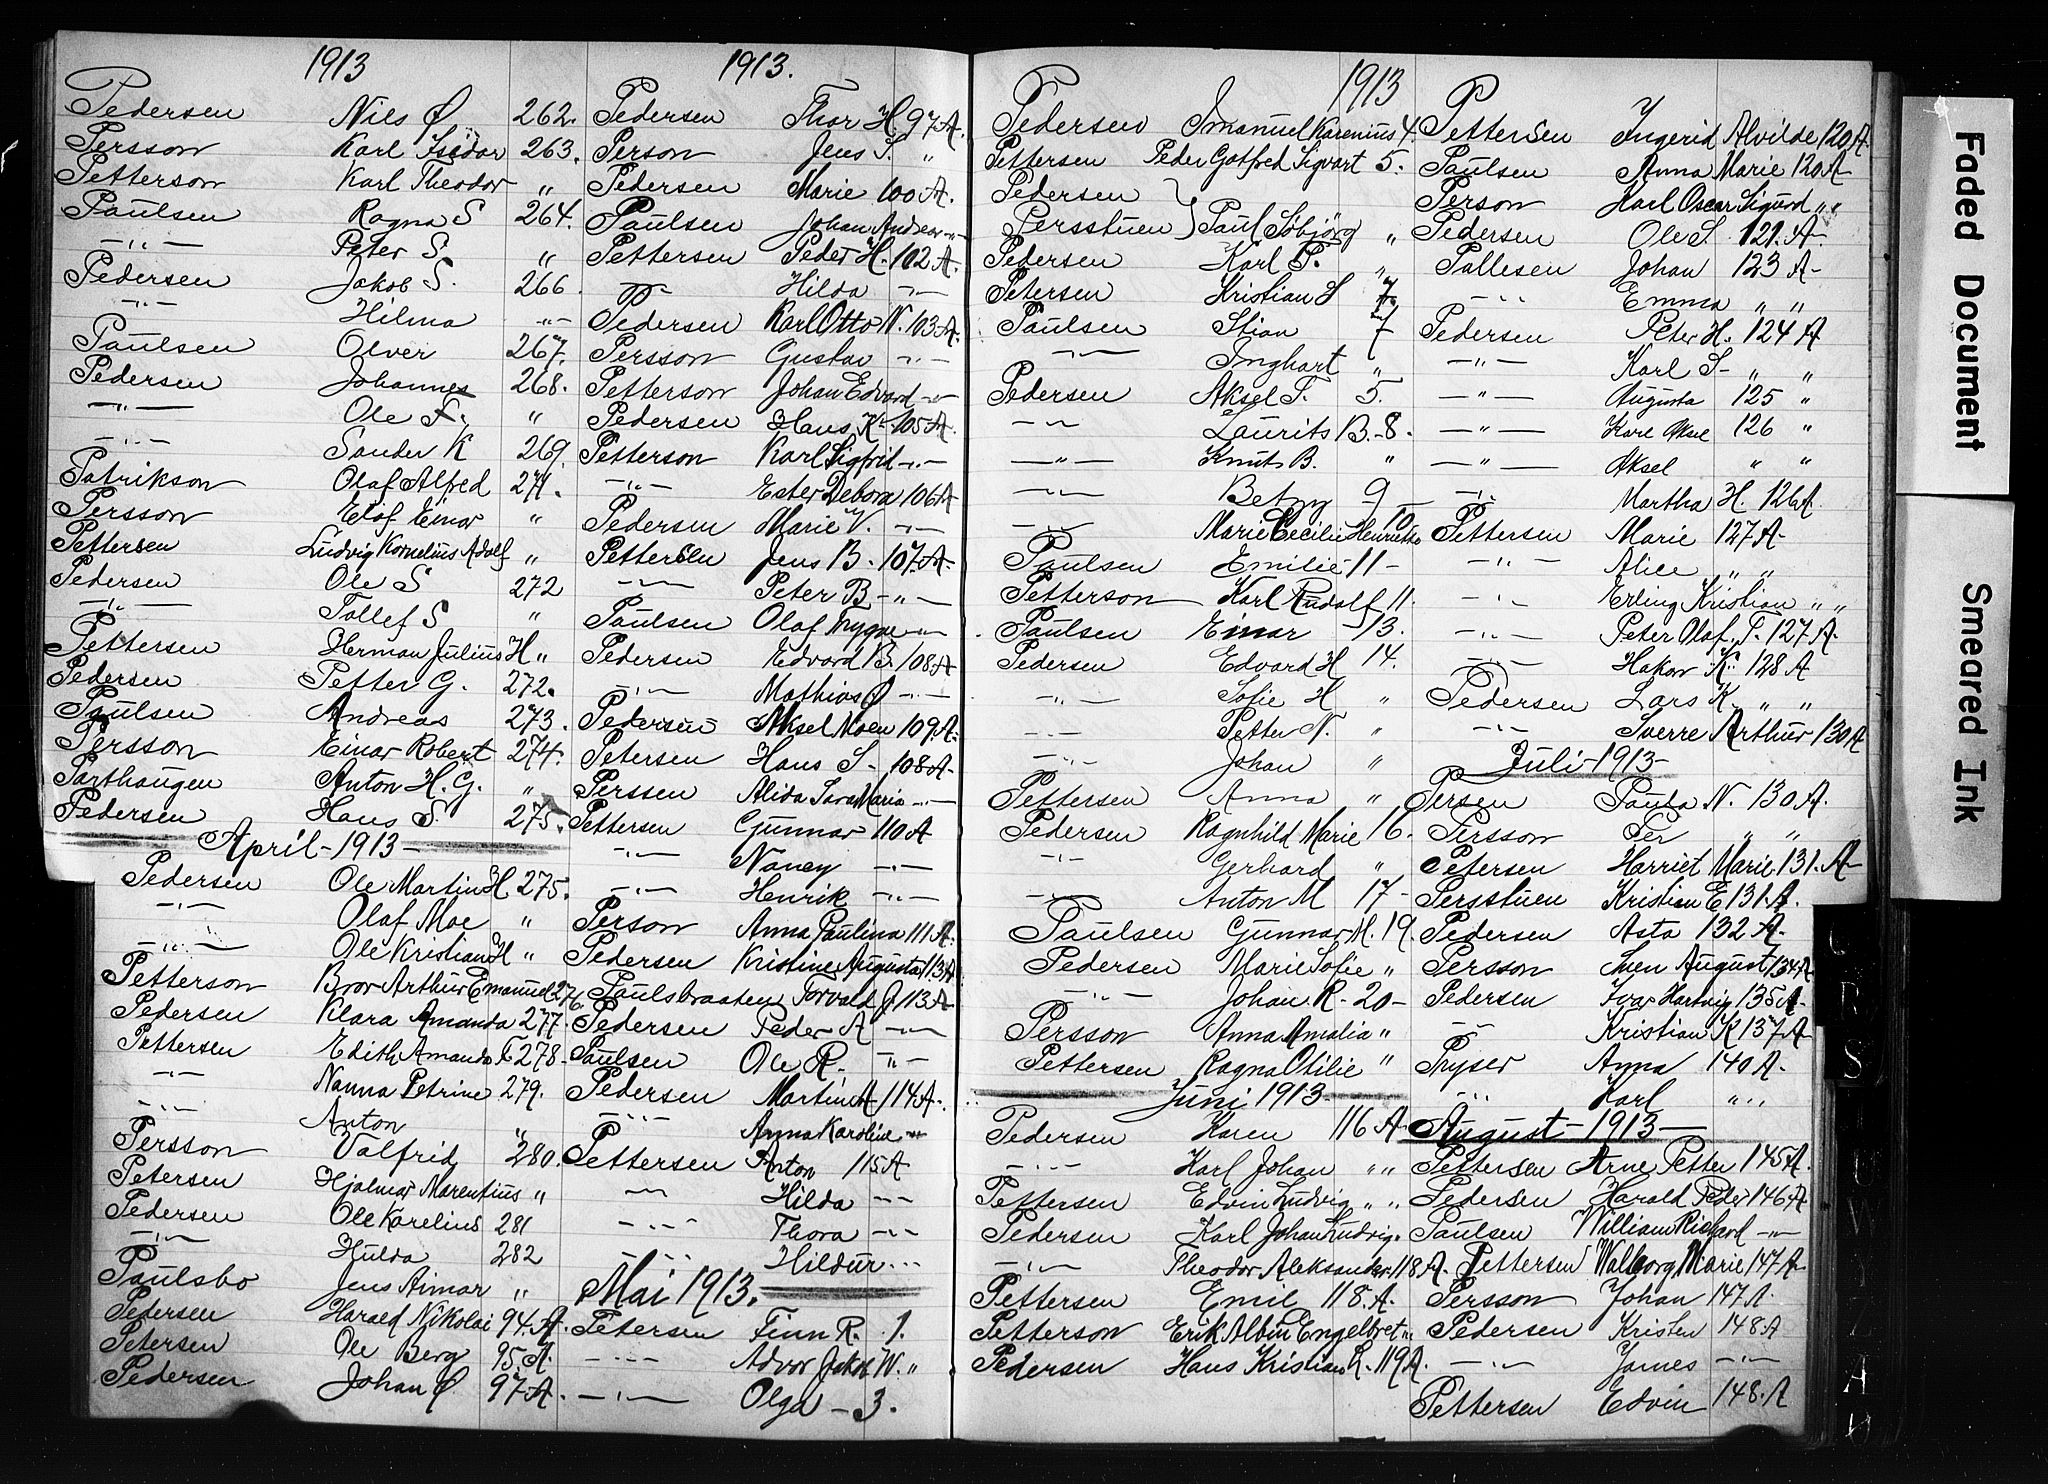 1913
Pedersen Nils Ø 262.
Persson Karl Isidor 263.
Petterson Karl Theodor „
Paulsen Ragna S 264.
—„— Peter S. „
Pedersen Jakob S. 266
—„— Hilma „—
Paulsen Olver 267.
Pedersen Johannes 268.
—„— Ole F. „
—„— Sander K 269.
Patrikson Olaf Alfred 271.
Persson Elof Einar „
Pettersen Ludvig Kornelius Adolf „
Pedersen Ole S 272
—„— Tollef S „
Pettersen Herman Julius H „
Pedersen Petter G. 272.
Paulsen Andreas 273.
Persson Einar Robert 274.
Parthaugen Anton H. G. „
Pedersen Hans S. 275.
April - 1913 -
Pedersen Ole Martin H 275.
—„— Olaf Moe „
—„— Ole Kristian H „
Petterson Bror Arthur Emanuel 276.
Pedersen Klara Amanda 277.
Pettersen Edith Amanda F 278-
—„— Nanna Petrine 279.
—„— Anton „
Persson Valfrid 280.
Petersen Hjalmar Marentius „
Pedersen Ole Karelius 281
—„— Hulda 282
Paulsbo Jens Aimar „
Pedersen Harald Nikolai 94.A.
Petersen Ole Berg 95.A.
Pedersen Johan Ø 97.A.
1913.
Pedersen Thor H. 97.A.
Person Jens S. „
Pedersen Marie 100 A.
Paulsen Johan Andreas —„—
Pettersen Peder H. 102 A.
—„— Hilda —„—
Pedersen Karl Otto N. 103 A.
Persson Gustav —„—
Petterson Johan Edvard —„—
Pedersen Hans K. 105 A.
Petterson Karl Sigfrid —„—
—„— Ester Debora 106 A
Pedersen Marie V. —„—
Pettersen Jens B. 107.A-
—„— Peter B —„—
Paulsen Olaf Trygve —„—
Pedersen Edvard B. 108 A
—„— Mathias Ø —„—
Pedersen Aksel Moen 109 A-
Petersen Hans S - 108 A-
Perssen Alida Sara Maria —„—
Pettersen Gunnar 110 A
—„— Nancy —„—
—„— Henrik —„—
Person Anna Paulina 111 A.
Pedersen Kristine Augusta 113 A
Paulsbraaten Torvald J. 113 A-
Pedersen Peder A —„—
Paulsen Ole R. —„—
Pedersen Martin A 114 A.
—„— Anna Karoline —„—
Pettersen Anton 115 A
—„— Hilda —„—
—„— Thora —„—
—„— Hildur —„—
Mai 1913.
Petersen Finn R. 1.
—„— Advor Jakob W. „
—„— Olga - 3.
1913
Pedersen Imanuel Karenius 4.
Pettersen Peder Gotfred Sigvart 5.
Pedersen
Persstuen } Paul Sóbjörg „
Pedersen Karl P. „
Petersen Kristian H 7.
Paulsen Stian 7
—„— Inghart „
Pedersen Aksel T. 5.
—„— Laurits B. - 8.
—„— Knut B. „
—„— Betzy 9 -
—„— Marie Cecilie Henriette 10
Paulsen Emilie 11 -
Petterson Karl Rudolf 11.
Paulsen Einar 13.
Pedersen Edvard H 14.
—„— Sofie H „
—„— Petter N. „
—„— Johan „
Pettersen Anna „
Pedersen Ragnhild Marie 16.
—„— Gerhard „
—„— Anton M 17-
Paulsen Gunnar M. 19.
Pedersen Marie Sofie „
—„— Johan R. - 20 -
Persson Anna Amalia „
Pettersen Ragna Otilie „
Juni 1913 -
Pedersen Karen 116 A-
—„— Karl Johan „ „
Pettersen Edvin Ludvig „ „
Pedersen Karl Johan Ludvig „
—„— Theodor Aleksander 118 A.
Pettersen Emil 118.A.
Petterson Erik Albin Engelbret „
Pedersen Hans Kristian R. 119 A.
Pettersen Ingerid Alvilde 120 A.
Paulsen Anna Marie 120 A-
Person Karl Oscar Sigurd „ „
Pedersen Ole S. 121.A-
Pallesen Johan 123 A-
—„— Emma „ „
Pedersen Peter H. 124 A
—„— Karl S- „ „
—„— Augusta 125 „
—„— Karl Aksel 126 „
—„— Aksel „ „
—„— Martha H. 126 A.
Pettersen Marie 127 A-
—„— Alice „ „
—„— Erling Kristian „ „
—„— Peter Olaf. P. 127 A-
—„— Hakon K. 128 A
Pedersen Lars K. „ „
—„— Sverre Arthur 130 A
Juli - 1913 -
Persen Paula N. 130 A.
Persson Per „ „
Petersen Harriet Marie 131.A-
Persstuen Kristian E 131.A.
Pedersen Asta 132 A-
Persson Sven August 134 A
Pedersen Ivar Hartvig 135 A-
—„— Kristian K 137 A
Pryser Anna 140 A-
—„— Karl „ „
August - 1913 -
Pettersen Arne Petter 145 A.
Pedersen Harald Peder 146 A
Paulsen William Richard —„—
Pettersen Walborg Marie 147 A-
Persson Johan 147 A.
Pedersen Kristen 148 A
—„— James —„—
Pettersen Edvin 148.A
Faded Document
Smeared Ink